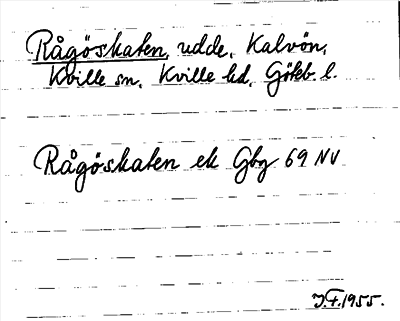 Rågöskaten, udde, Kalvön,
Kville sn, Kville hd, Göteb. l.
Rågöskaten ek Gbg 69 NV
J.F. 1955.